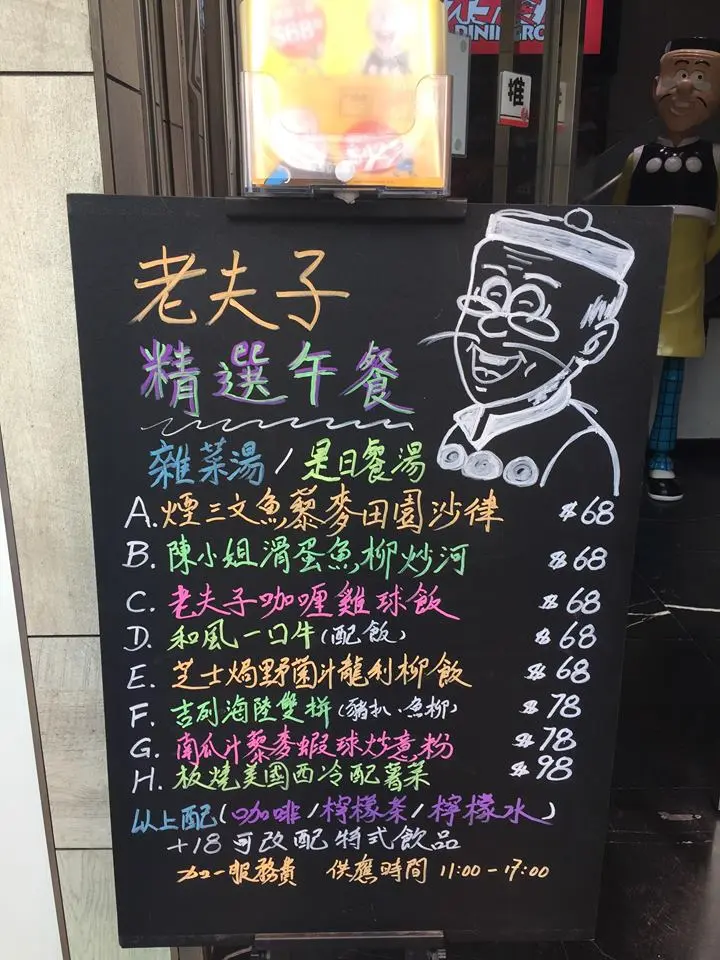 DINING
推
老夫子
精選午餐
雜菜湯/是日餐湯
A.煙三文魚藜麥田園沙律 $68
B.陳小姐滑蛋魚柳炒河 $68
C.老夫子咖喱雞球飯 $68
D.和風一口牛(配飯) $68
E.芝士焗野菌汁龍利柳飯 $68
F.吉列海陸雙拼(豬扒、魚柳) $78
G.南瓜汁藜麥蝦球炒意粉 $78
H.板燒美國西冷配薯菜 $98
以上配(咖啡/檸檬茶/檸檬水)
+18可改配特式飲品
加一服務費 供應時間 11:00-17:00